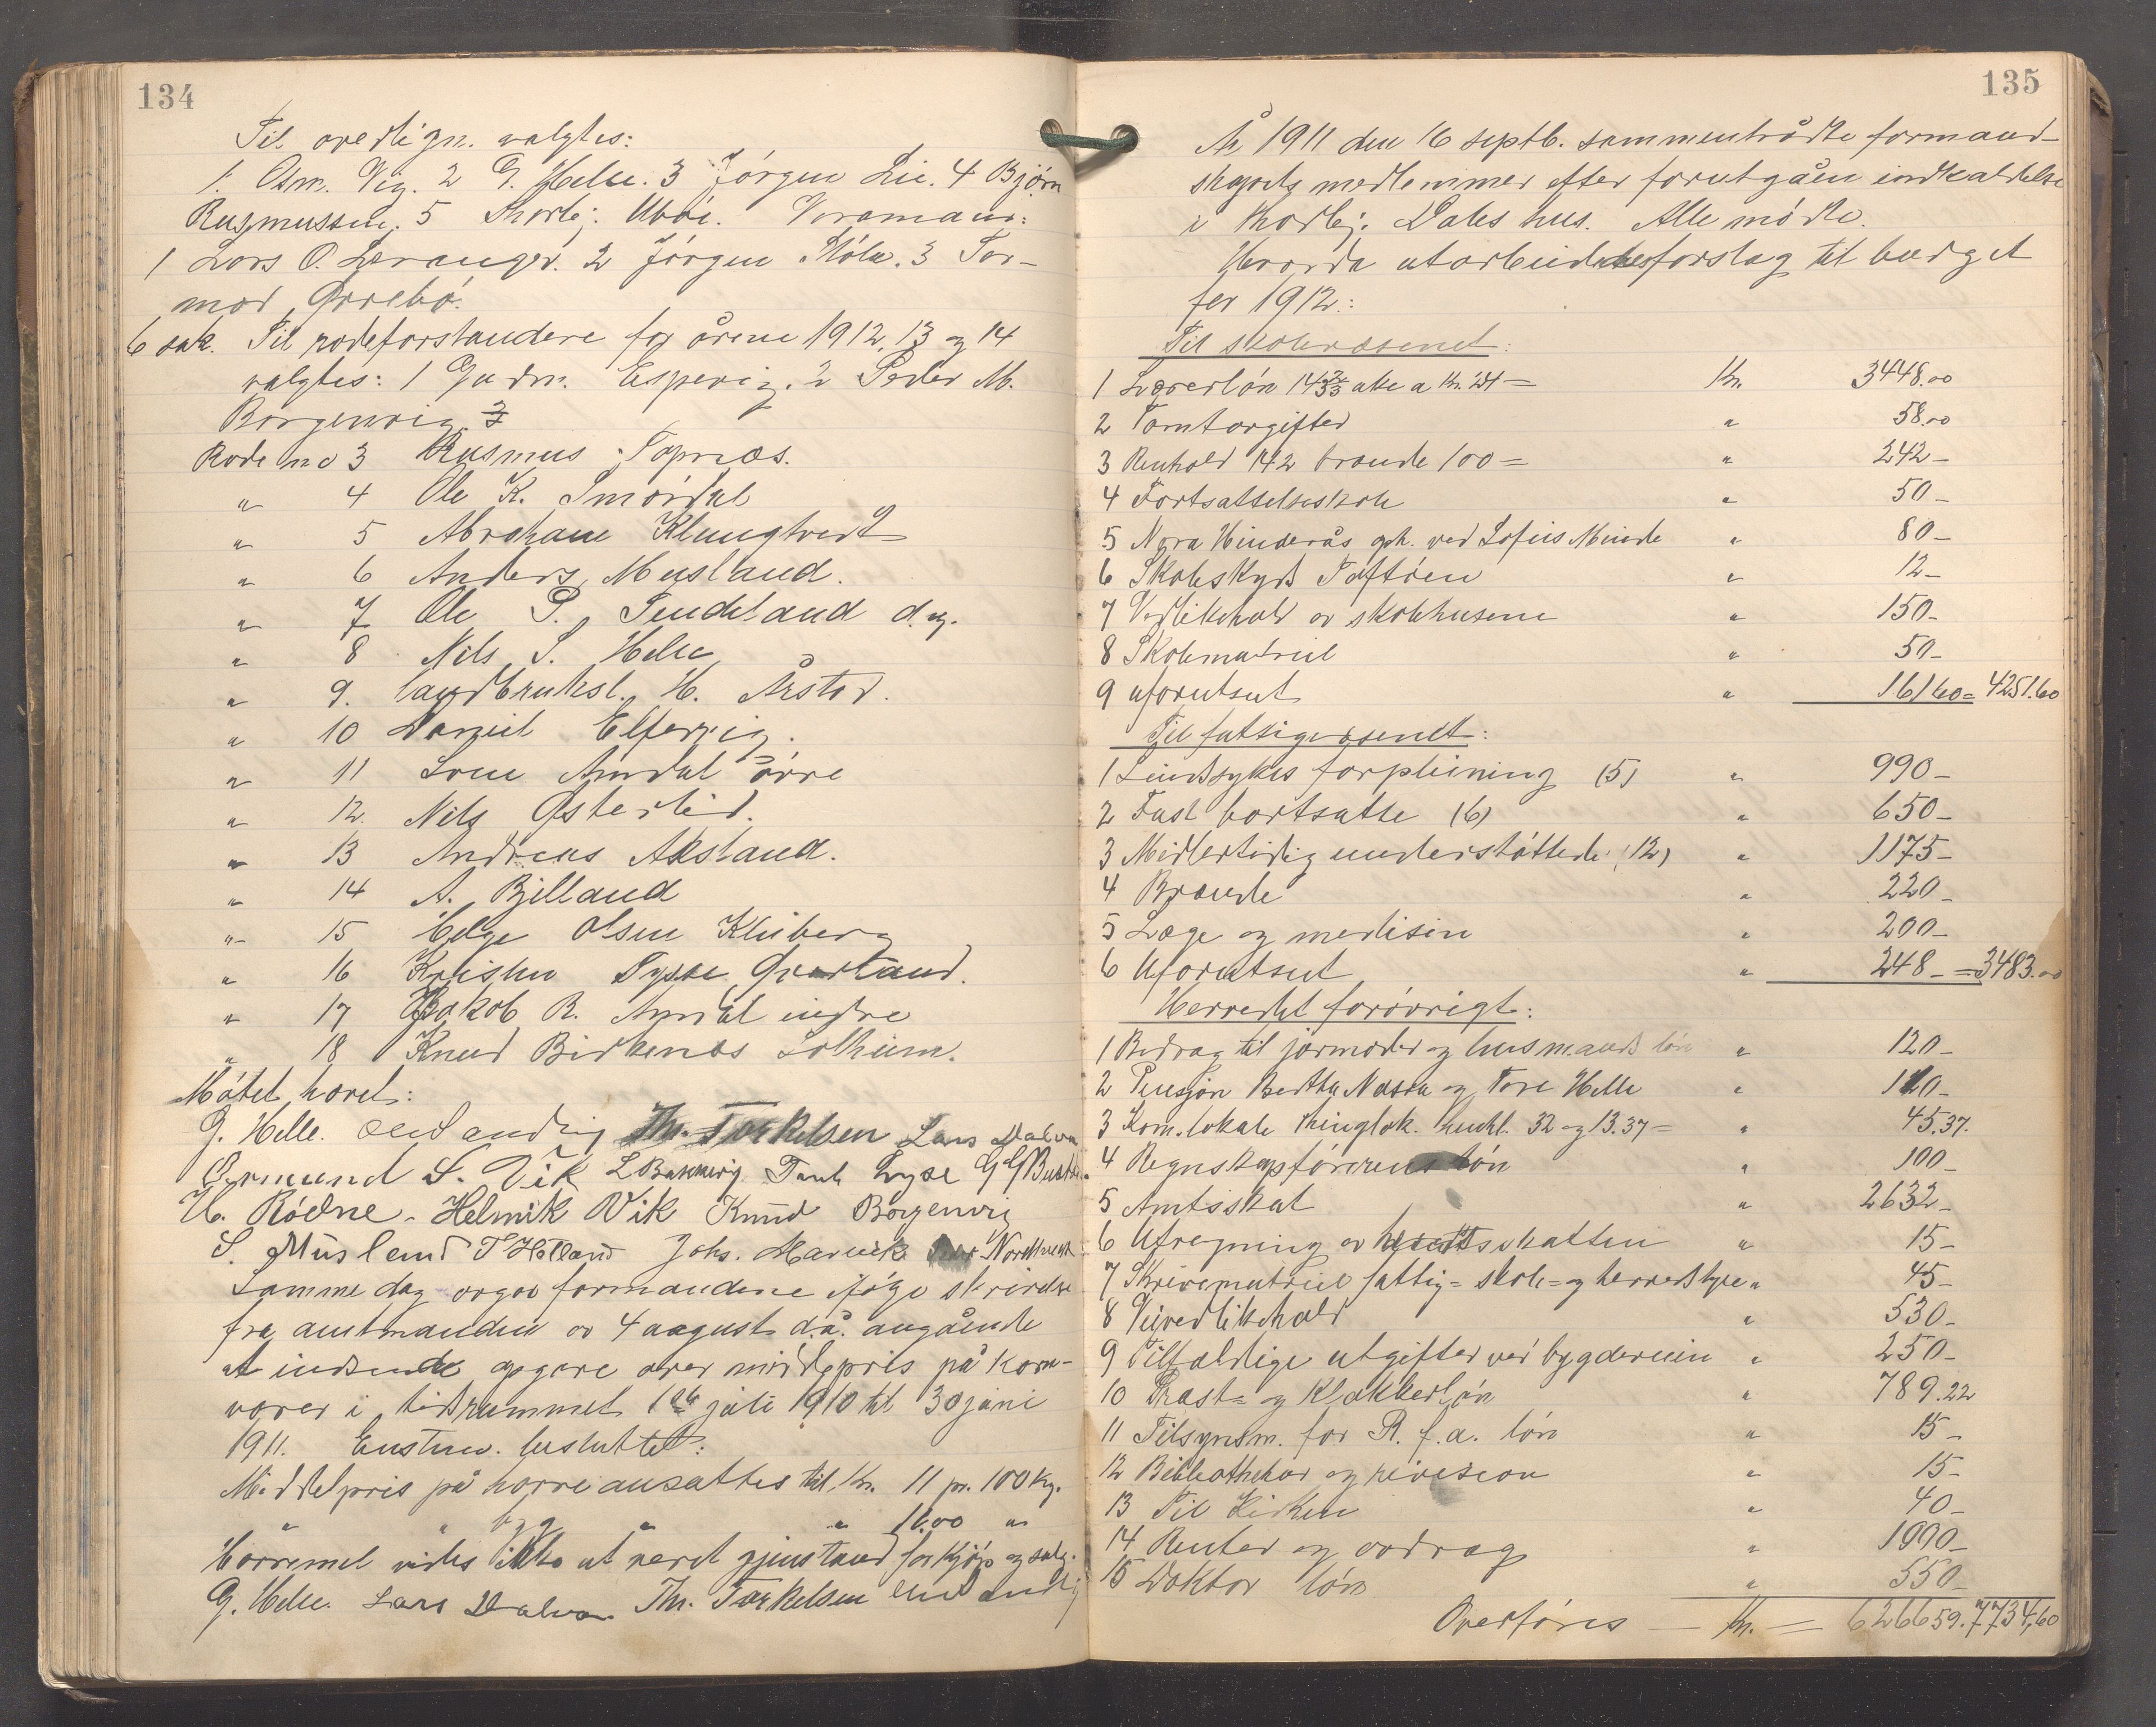 134
Til overlign. valgtes:
1. Osm. Vig. 2 G. Helle. 3 Jörgen Lie. 4 Bjørn
Rasmussen. 5 Thorbj. Uböe. Varamænd:
1 Lars O. Leranger. 2 Jörgen Stöle. 3 Tor-
mod Orrebö.
6 sak. Til rodeforstandere for årene 1912, 13 og 14
valgtes: 1 Gudm. Espevig. 2 Peder M.
Borgenvig 3
Rode no 3 Rasmus Topnæs.
" 4 Ole K. Smördal
" 5 Abraham Klungtvedt
" 6 Anders Musland.
" 7 Ole P. Tendeland d.y.
" 8 Nils S. Helle
" 9. landbruksl. H. Årstad.
" 10 Daniel Elfervig.
" 11 Sven Amdal övre
" 12. Nils Østerlid.
" 13 Andreas Aksland.
" 14 A. Bjelland
" 15 Helge Olsen Kleiberg
" 16 Kristen Tysse
" 17 Jakob R. Amdal indre
" 18 Knud Birkenæs Solheim.
Mötet hævet:
G. Helle. Th. Torkelsen Lars Dalva
Osmund S. Vik L Bakkevig Tank Lyse G G
H. Rödne - Helmik Vik Knud Borgenvig
S. Musland T Hetland Johs. Marvik
Samme dag avgav formændene ifölge skrivelse
fra amtmanden av 4 august d.å. angående
at indsende opgave over middelpris på korn-
varer i tidsrummet 1ste juli 1910 til 30 juni
1911. Enstem. besluttet:
Middelpris på havre ansættes til Kr. 11 pr. 100 kg.
" " byg " " 11.00 "
Havremel vides ikke at været gjenstand for kjöp og salg.
G. Helle. Lars Dalva. Th. Torkelsen
135
År 1911 den 16 septb. sammentrådte formand-
skapets medlemmer efter forutgåen indkaldelse
i Thorbj. Dales hus. Alle mödte.
Hvorda utarbeidedes forslag til budget
for 1912:
Til skolevæsenet:
1 Lærerlön 143 2/3 uke a kr. 24 = Kr. 3448.00
2 Tomtavgifter " 58.00
3 Renhold 142 brænde 100 = " 242 -
4 Fortsættelsesskole " 50 -
5 Nora Hinderås oph. ved Sofies Minde " 80 -
6 Skoleskyds Toftöen " 12 -
7 Vedlikehold av skolehusene " 150 -
8 Skolematriel " 50 -
9 uforutset " 161 60 = 4251.60
Til fattigvæsenet:
1 Sindsykes forpleining (5) " 990 -
2 Fast bortsatte (6) " 650 -
3 Midlertidig understöttede (12) " 1175 -
4 Brænde " 220 -
5 Læge og medisin " 200 -
6 Uforutset " 248 - = 3483.00
Herredet forövrigt:
1 Bidrag til jormoder og husmands lön " 120 -
2 Pensjon Bertha Næssa og Tore Helle " 110 -
3 Kom. lokale thinglok. henhl. 32 og 13.37 = " 45.37.
4 Regnskapsförerens lön " 100 -
5 Amtsskat " 2632 -
6 Utregning av herredsskatten " 15 -
7 Skrivematriel fattig= skole= og herredstyre " 45 -
8 Veivedlikehold " 530 -
9 Tilfældige utgifter ved bygdeveien " 250 -
10 Præst= og Klokkerlön " 789.22
11 Tilsynsm. for R. f. a. lön " 15 -
12 Bibliothekar og revision " 15 -
13 Til Kirken " 40 -
14 Renter og avdrag " 1000 -
15 Doktor lön " 550 -
Overföres - Kr. = 626659. 7734,60